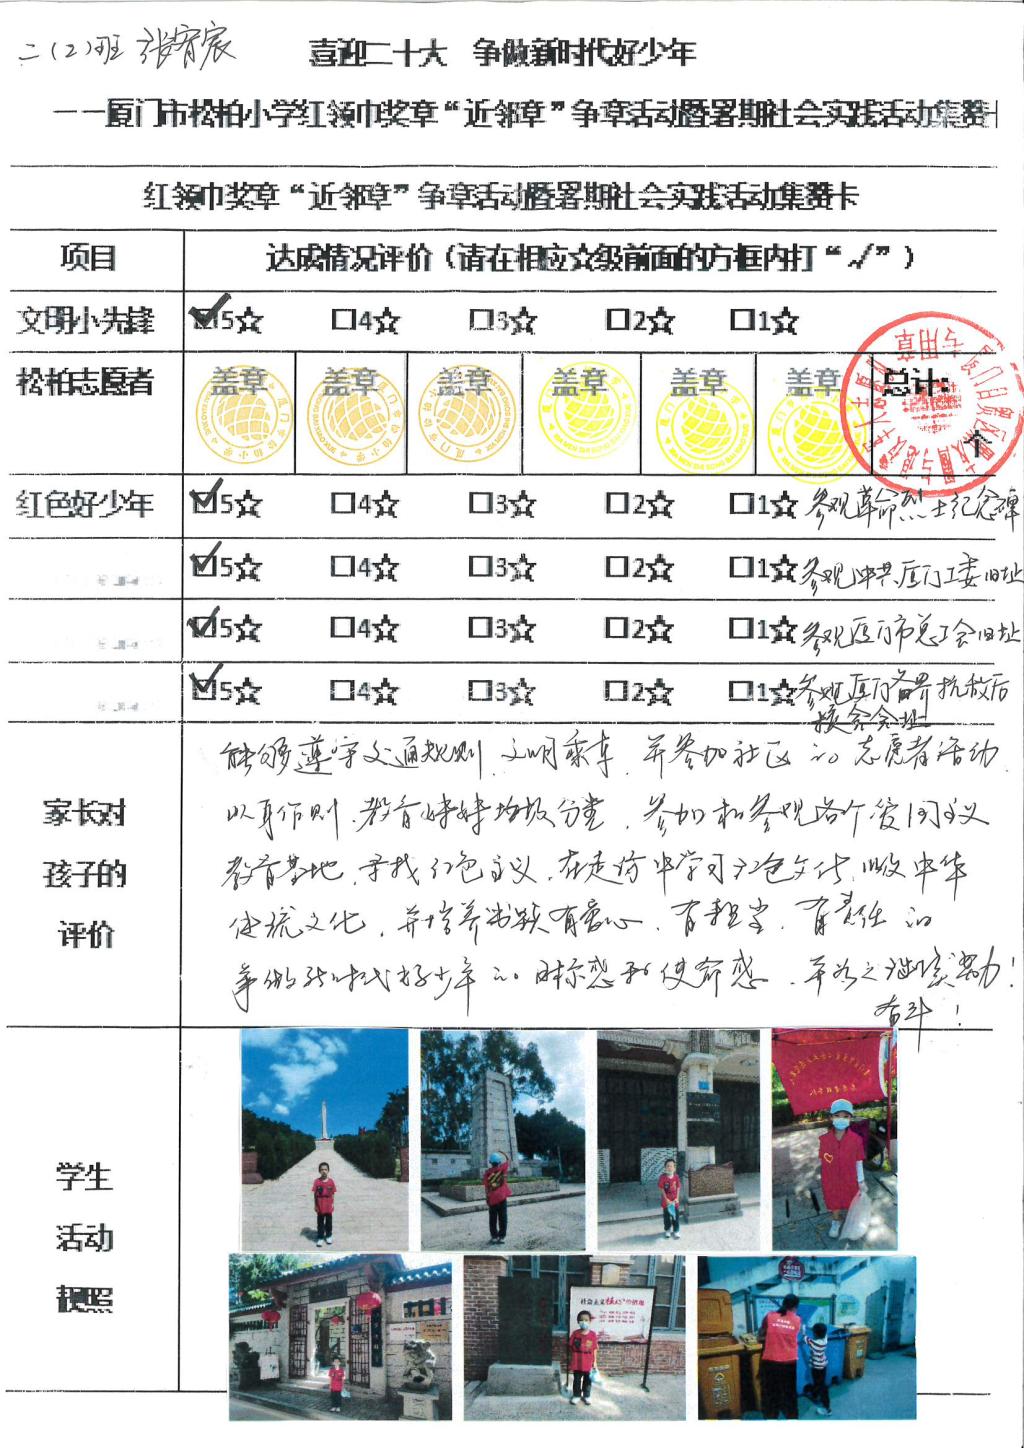 二(2)班 张宥宸
喜迎二十大 争做新时代好少年
——厦门市松柏小学红领巾奖章“近邻章”争章活动暨暑期社会实践活动集赞卡
红领巾奖章“近邻章”争章活动暨暑期社会实践活动集赞卡
项目 达成情况评价(请在相应☆级前面的方框内打“√”)
文明小先锋 ☑5☆ □4☆ □3☆ □2☆ □1☆
松柏志愿者 盖章 盖章 盖章 盖章 盖章 盖章 总计: 个
专用章
红色好少年 ☑5☆ □4☆ □3☆ □2☆ □1☆ 参观革命烈士纪念碑
☑5☆ □4☆ □3☆ □2☆ □1☆ 参观中共厦门工委旧址
☑5☆ □4☆ □3☆ □2☆ □1☆ 参观厦门市总工会旧址
☑5☆ □4☆ □3☆ □2☆ □1☆ 参观厦门各界抗敌后
援会会址
能够遵守交通规则,文明乘车,并参加社区的志愿者活动
家长对 以身作则,教育妹妹垃圾分类,参加和参观各个爱国主义
孩子的 教育基地,寻找红色主义,在走访中学习红色文化,吸收中华
评价 传统文化,并培养成颗有爱心,有担当,有责任的
争做新时代好少年的时尔感和使命感,并为之继续努力!
奋斗!
学生
活动
靓照
社会主义核心价值观